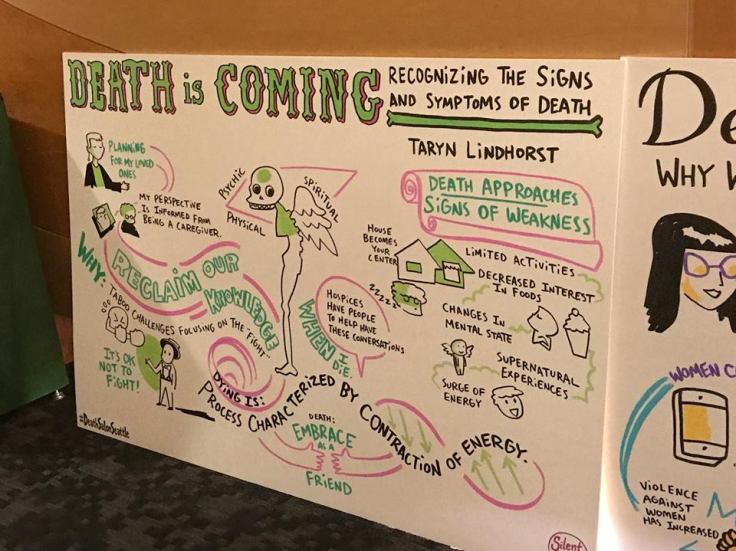 DEATH is COMING
RECOGNIZING THE SIGNS
AND SYMPTOMS OF DEATH
TARYN LINDHORST
PLANNING
FOR MY LOVED
ONES
MY PERSPECTIVE
IS INFORMED FROM
BEING A CAREGIVER.
PSYCHIC
SPIRITUAL
PHYSICAL
DEATH APPROACHES
SIGNS OF WEAKNESS
HOUSE
BECOMES
YOUR
CENTER
LIMITED ACTIVITIES
DECREASED INTEREST
IN FOODS
zzzzz
CHANGES IN
MENTAL STATE
SUPERNATURAL
EXPERIENCES
SURGE OF
ENERGY
RECLAIM OUR
KNOWLEDGE
WHY:
TABOO CHALLENGES FOCUSING ON THE "FIGHT"
IT'S OK
NOT TO
FIGHT!
WHEN I
DIE
HOSPICES
HAVE PEOPLE
TO HELP HAVE
THESE CONVERSATIONS
DYING IS:
PROCESS CHARACTERIZED BY CONTRACTION OF ENERGY.
DEATH:
EMBRACE
AS A
FRIEND
#DeathSalonSeattle
Silent
De
WHY W
WOMEN C
VIOLENCE
AGAINST
WOMEN
HAS INCREASED